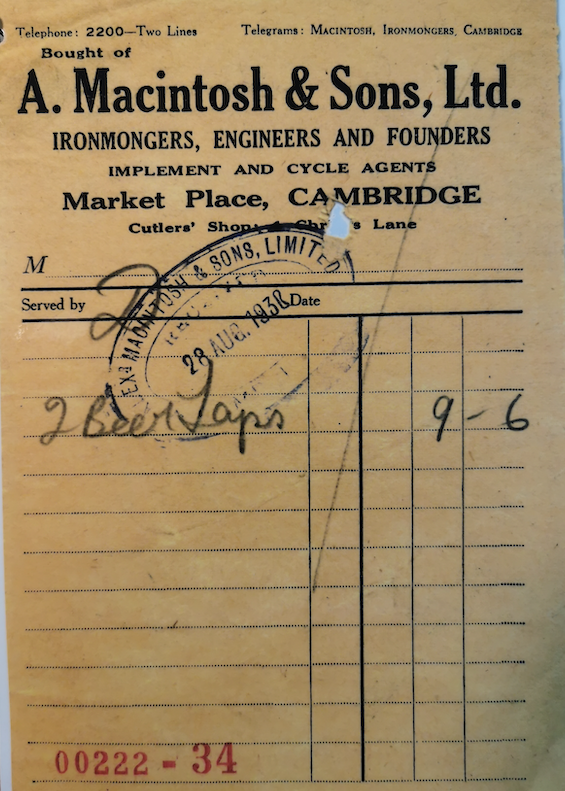 Telephone: 2200—Two Lines Telegrams: MACINTOSH, IRONMONGERS, CAMBRIDGE
Bought of
A. Macintosh & Sons, Ltd.
IRONMONGERS, ENGINEERS AND FOUNDERS
IMPLEMENT AND CYCLE AGENTS
Market Place, CAMBRIDGE
Cutlers' Shop: Lane
M
Served by Date
ALEXR MACINTOSH & SONS, LIMITED
28 AUG. 1938
2 Beer Taps 9 - 6
00222 - 34